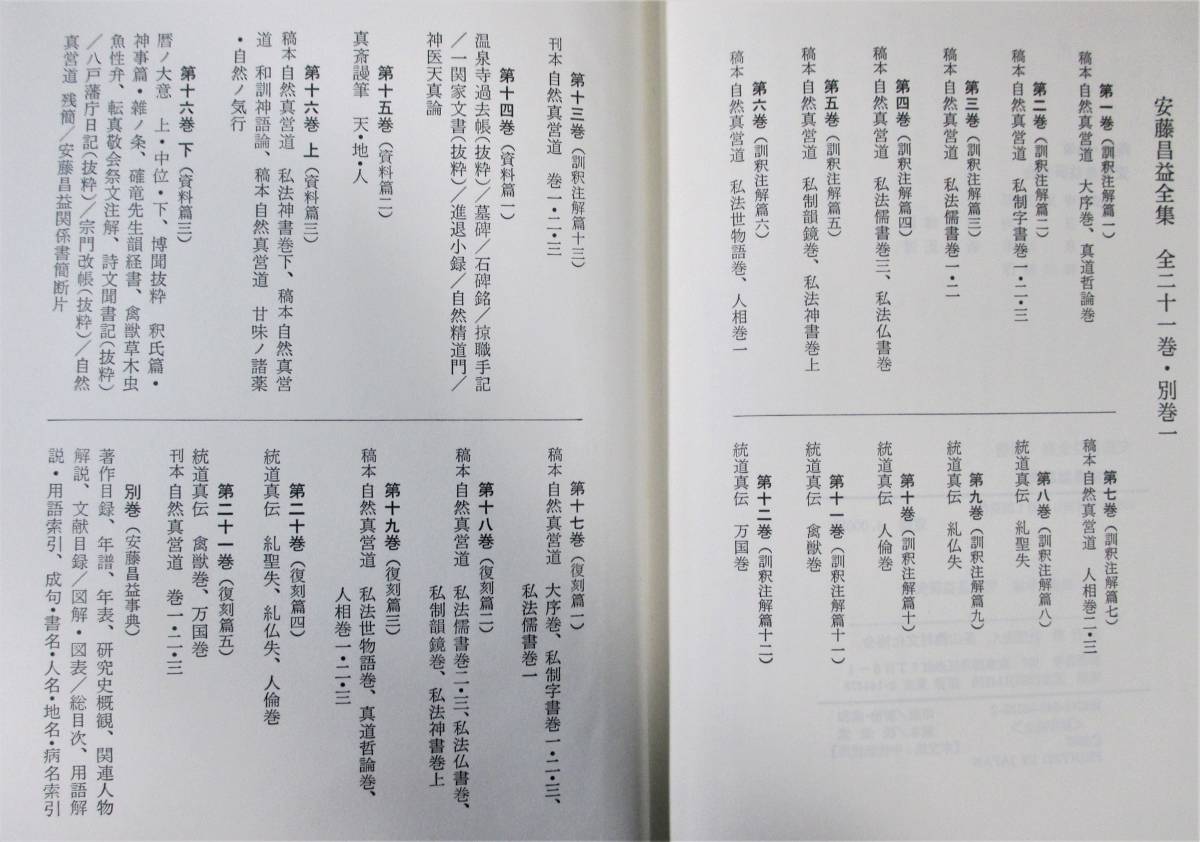 安藤昌益全集　全二十一巻・別巻一
第一巻（訓釈注解篇一）
稿本 自然真営道　大序巻、真道哲論巻
第二巻（訓釈注解篇二）
稿本 自然真営道　私制字書巻一・二・三
第三巻（訓釈注解篇三）
稿本 自然真営道　私法儒書巻一・二
第四巻（訓釈注解篇四）
稿本 自然真営道　私法儒書巻三、私法仏書巻
第五巻（訓釈注解篇五）
稿本 自然真営道　私制韻鏡巻、私法神書巻上
第六巻（訓釈注解篇六）
稿本 自然真営道　私法世物語巻、人相巻一
第七巻（訓釈注解篇七）
稿本 自然真営道　人相巻二・三
第八巻（訓釈注解篇八）
統道真伝　糺聖失
第九巻（訓釈注解篇九）
統道真伝　糺仏失
第十巻（訓釈注解篇十）
統道真伝　人倫巻
第十一巻（訓釈注解篇十一）
統道真伝　禽獣巻
第十二巻（訓釈注解篇十二）
統道真伝　万国巻
第十三巻（訓釈注解篇十三）
刊本 自然真営道　巻一・二・三
第十四巻（資料篇一）
温泉寺過去帳（抜粋）／墓碑／石碑銘／掠職手記
／一関家文書（抜粋）／進退小録／自然精道門／
神医天真論
第十五巻（資料篇二）
真斎謾筆　天・地・人
第十六巻 上（資料篇三）
稿本 自然真営道　私法神書巻下、稿本 自然真営
道　和訓神語論、稿本 自然真営道　甘味ノ諸薬
・自然ノ気行
第十六巻 下（資料篇三）
暦ノ大意　上・中位・下、博聞抜粋　釈氏篇・
神事篇・雑ノ条、確竜先生韻経書、禽獣草木虫
魚性弁、転真敬会祭文注解、詩文聞書記（抜粋）
／八戸藩庁日記（抜粋）／宗門改帳（抜粋）／自然
真営道 残簡／安藤昌益関係書簡断片
第十七巻（復刻篇一）
稿本 自然真営道　大序巻、私制字書巻一・二・三、
私法儒書巻一
第十八巻（復刻篇二）
稿本 自然真営道　私法儒書巻二・三、私法仏書巻、
私制韻鏡巻、私法神書巻上
第十九巻（復刻篇三）
稿本 自然真営道　私法世物語巻、真道哲論巻、
人相巻一・二・三
第二十巻（復刻篇四）
統道真伝　糺聖失、糺仏失、人倫巻
第二十一巻（復刻篇五）
統道真伝　禽獣巻、万国巻
刊本 自然真営道　巻一・二・三
別巻（安藤昌益事典）
著作目録、年譜、年表、研究史概観、関連人物
解説、文献目録／図解・図表／総目次、用語解
説・用語索引、成句・書名・人名・地名・病名索引